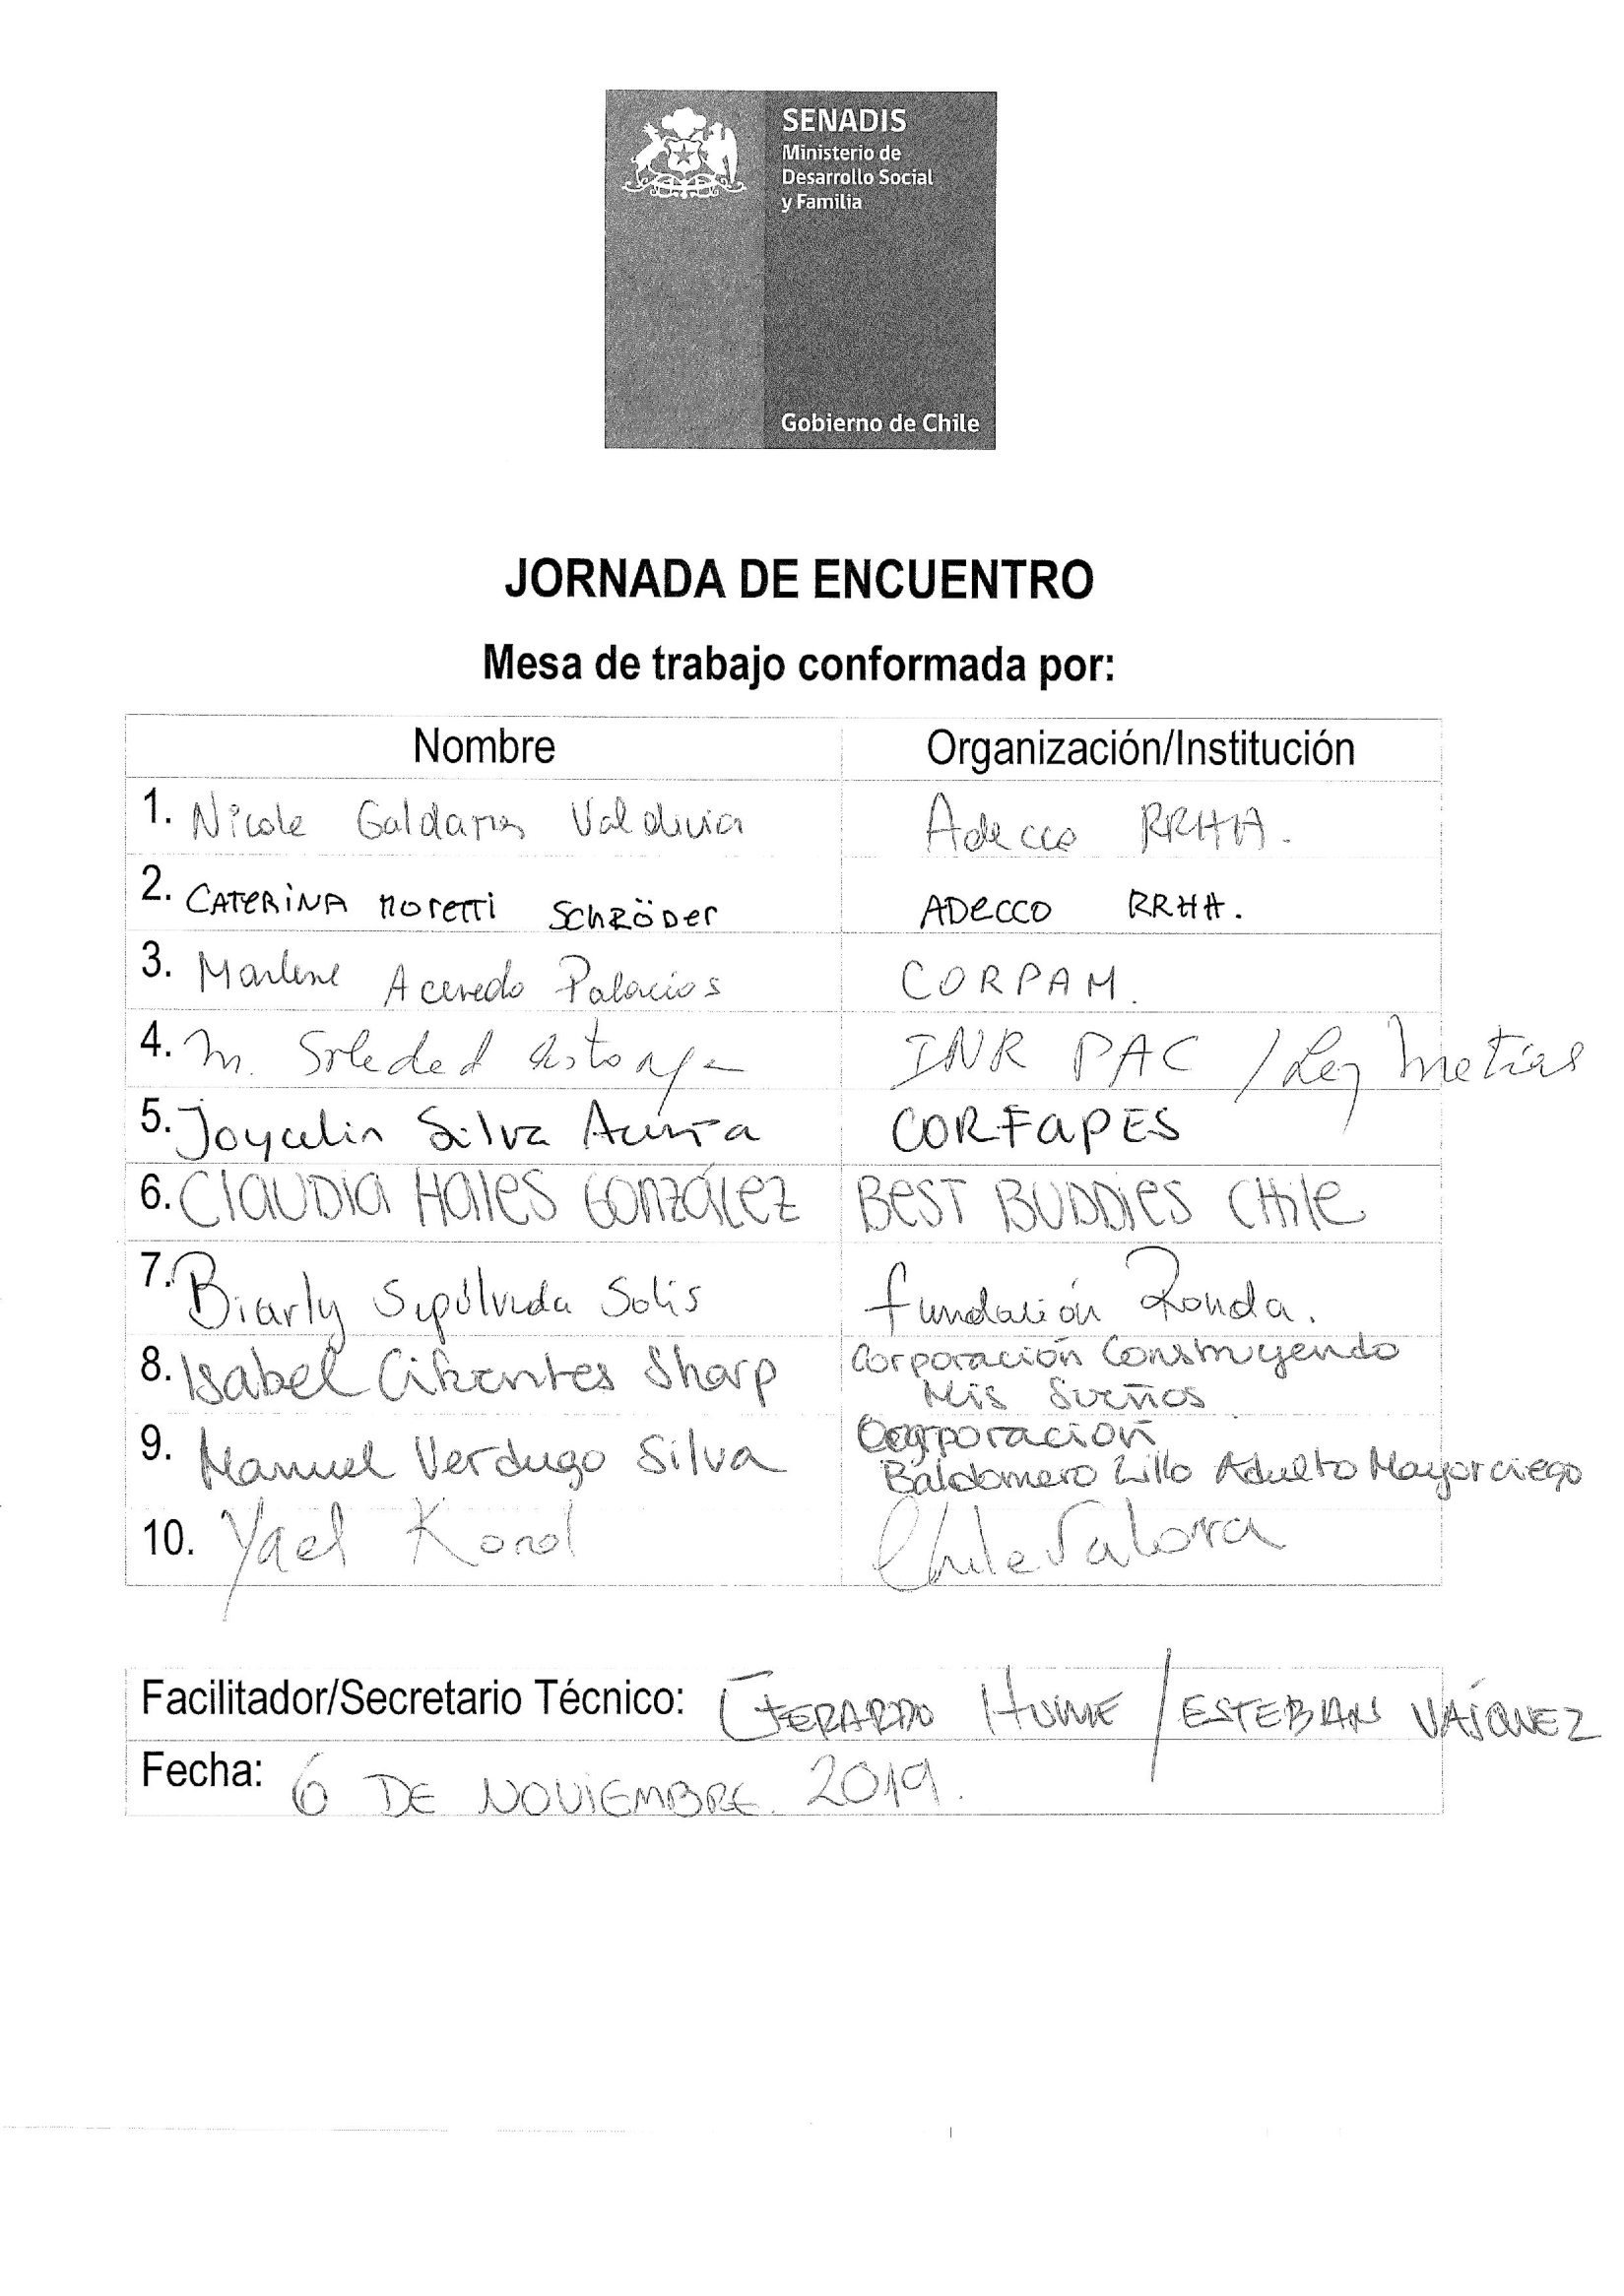 SENADIS
Ministerio de
Desarrollo Social
y Familia
Gobierno de Chile
JORNADA DE ENCUENTRO
Mesa de trabajo conformada por:
Nombre Organización/Institución
1. Nicole Galdames Valdivia Adecco RRHH.
2. CATERINA MORETTI SCHRÖDER ADECCO RRHH.
3. Marlene Acevedo Palacios CORPAM.
4. M. Soledad Astorga INR PAC / Ley Matías
5. Joycelin Silva Acuña CORFAPES
6. CLAUDIA HALES GONZÁLEZ BEST BUDDIES CHILE
7. Biarly Sepúlveda Solis Fundación Ronda.
8. Isabel Cifuentes Sharp Corporación Construyendo
Mis Sueños
9. Manuel Verdugo Silva Corporación
Baldomero Lillo Adulto Mayor ciego
10. Yael Korol ChileValora
Facilitador/Secretario Técnico: GERARDO HUME / ESTEBAN VÁSQUEZ
Fecha: 6 DE NOVIEMBRE 2019.